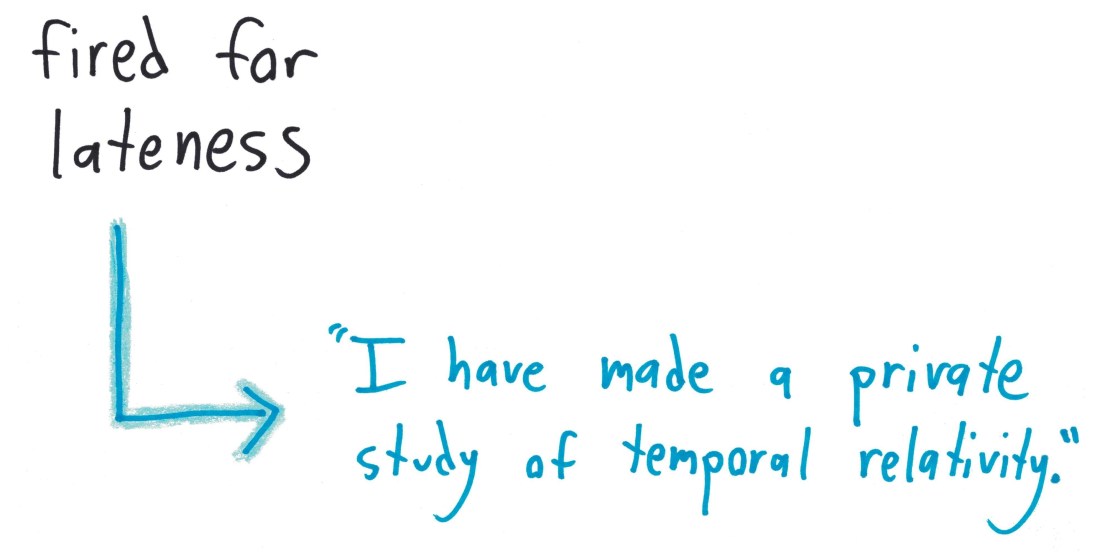 fired for
lateness
"I have made a private
study of temporal relativity."